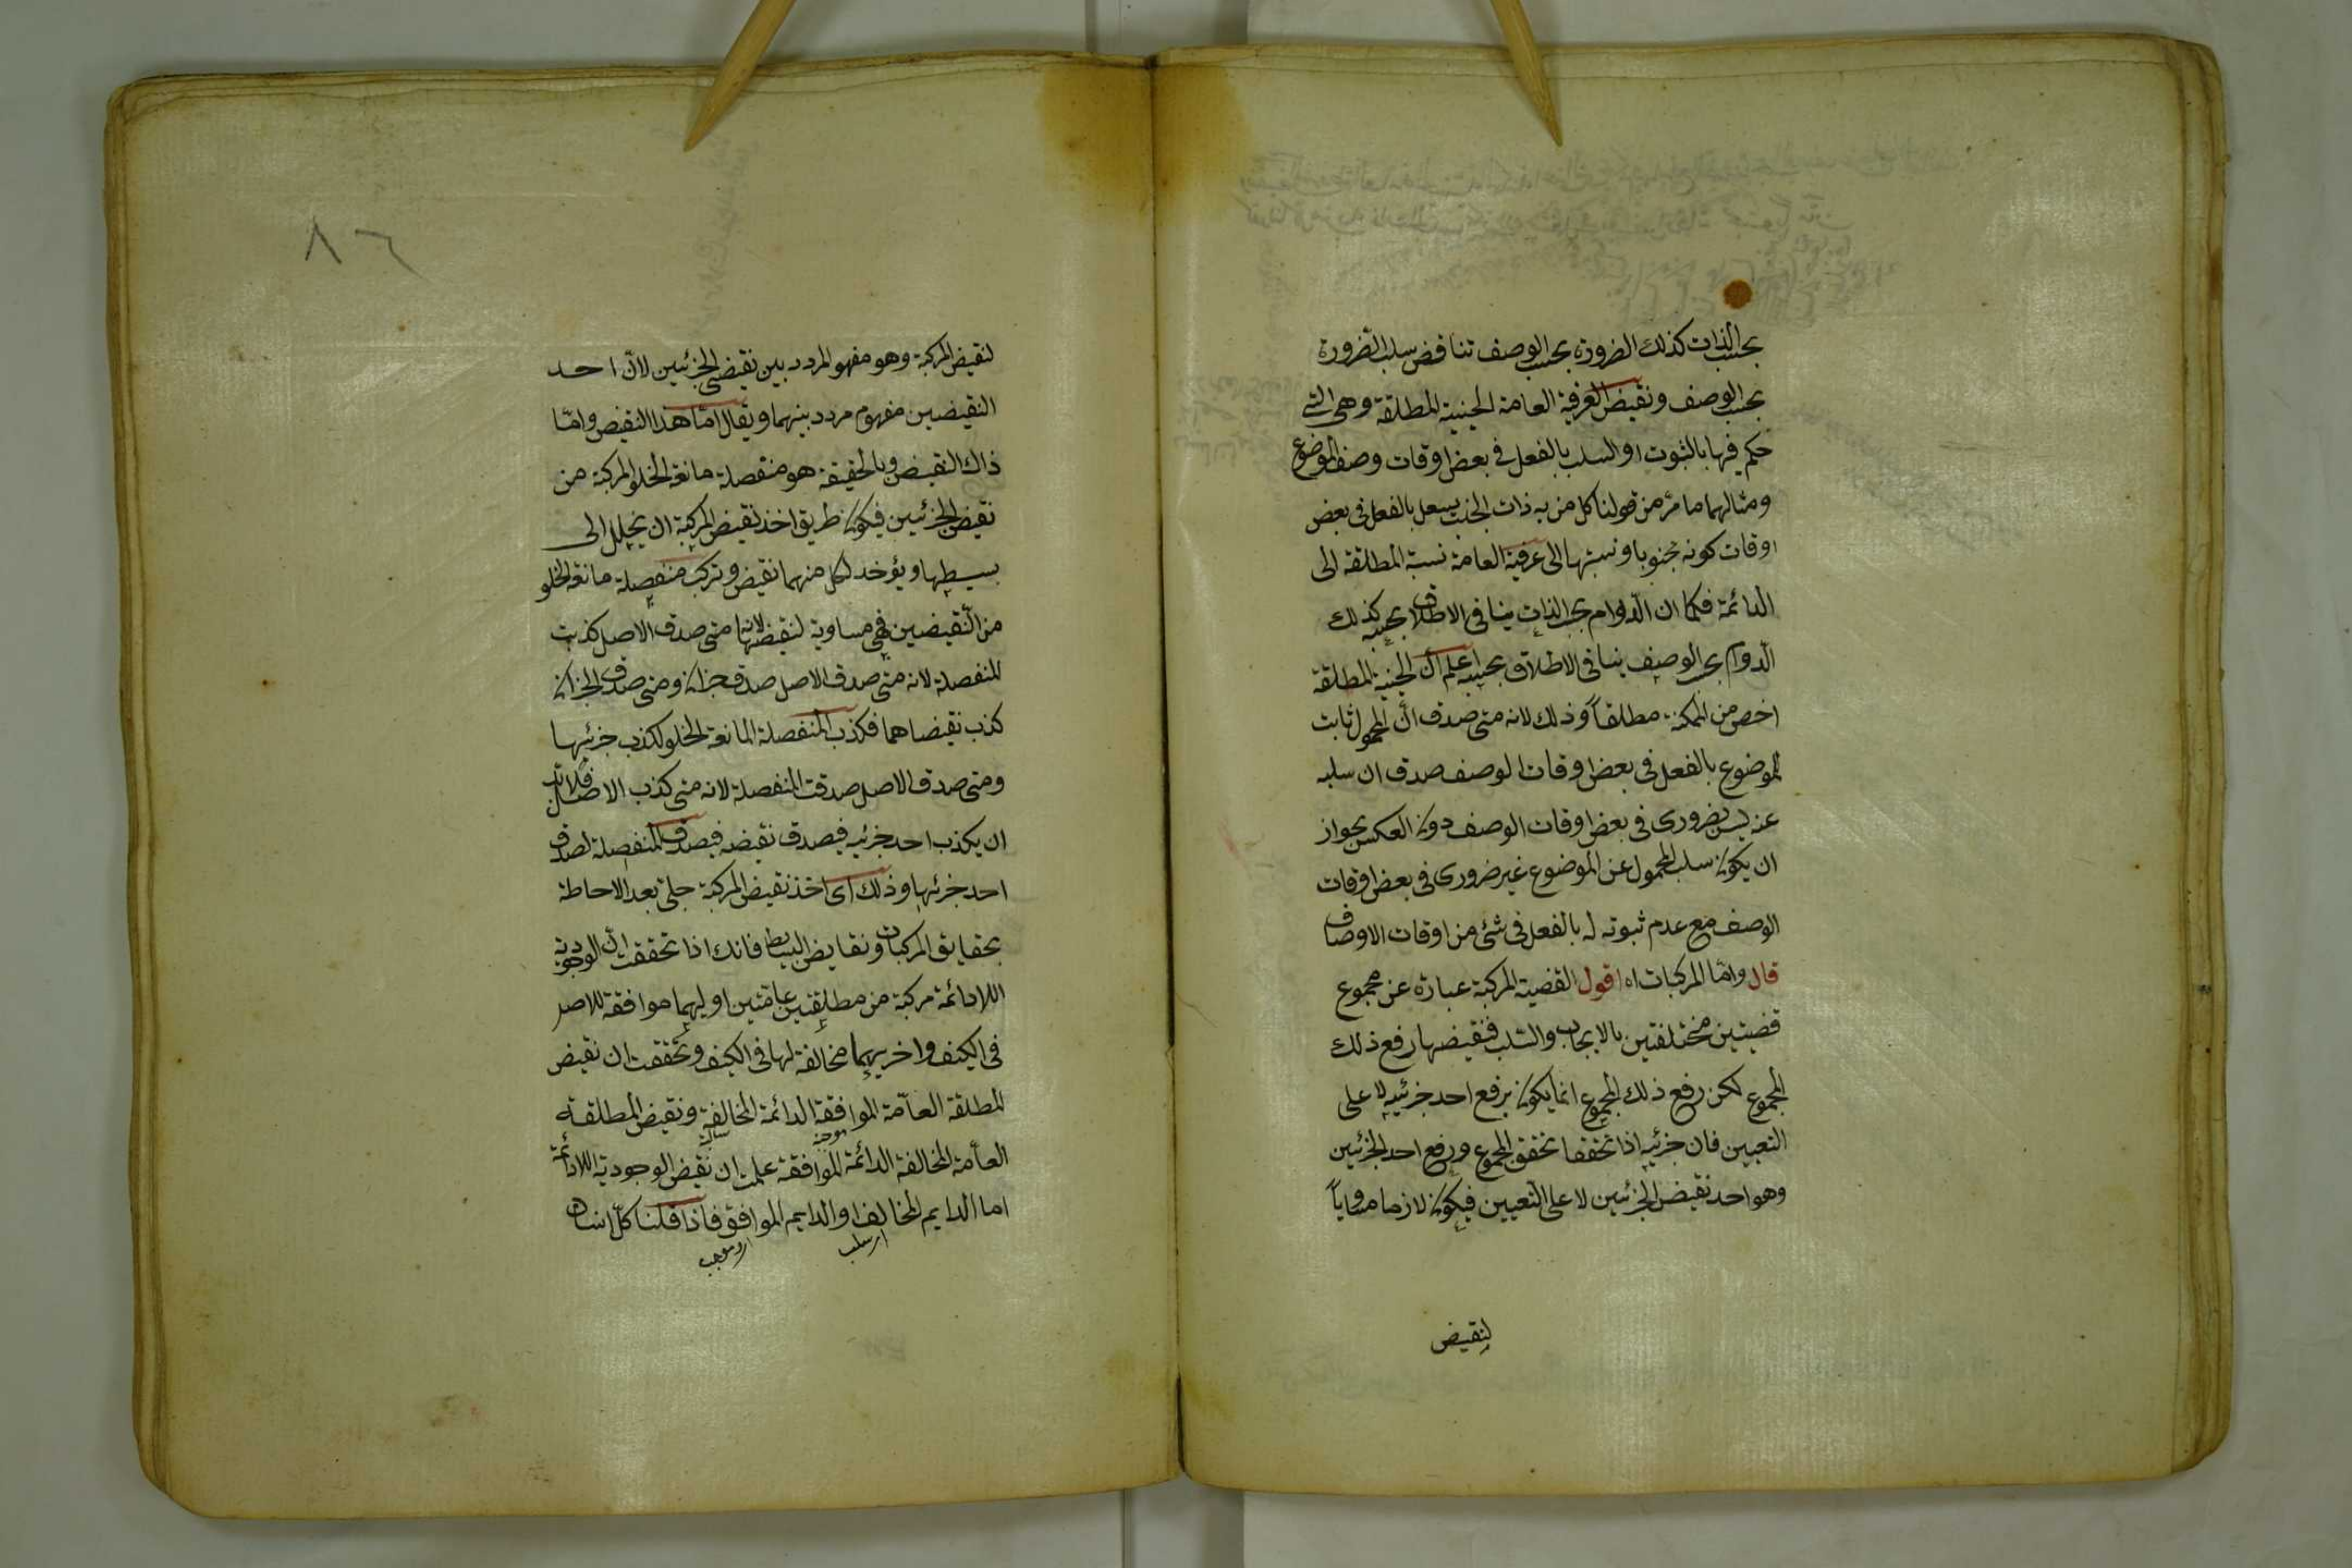 بحسب الذات كذلك الضرورة بحسب الوصف تناقض سلب الضرورة
بحسب الوصف ونقيض العرفية العامة الحينية المطلقة وهى التى
حكم فيها بالثبوت او السلب بالفعل فى بعض اوقات وصف الموضوع
ومثالهما ما مرّ من قولنا كل من به ذات الجنب يسعل بالفعل فى بعض
اوقات كونه مجنوبا ونسبتها الى عرفية العامة نسبة المطلقة الى
الدائمة فكما ان الدوام بحسب الذات ينافى الاطلاق بحسبه كذلك
الدوام بحسب الوصف ينافى الاطلاق بحسبه اعلم ان الحينية المطلقة
اخص من الممكنة مطلقاً وذلك لانه متى صدق انّ المحمول ثابت
للموضوع بالفعل فى بعض اوقات الوصف صدق ان سلبه
عنه ليس بضرورى فى بعض اوقات الوصف دون العكس بجواز
ان يكون سلب المحمول عن الموضوع غير ضرورى فى بعض اوقات
الوصف مع عدم ثبوته له بالفعل فى شئ من اوقات الاوصاف
قال وامّا المركبات اه اقول القضية المركبة عبارة عن مجموع
قضيتين مختلفتين بالايجاب والسلب فنقيضها رفع ذلك
المجموع لكن رفع ذلك المجموع انما يكون برفع احد جزئيه لا على
التعيين فان جزئيه اذا تحققا تحقق المجموع ورفع احد الجزئين
وهو احد نقيض الجزئين لا على التعيين فيكون لازما مساوياً
لنقيض
٨٦
لنقيض المركبة وهو مفهو المردد بين نقيضى الجزئين لانّ احد
النقيضين مفهوم مردد بينهما ويقال امّا هذا النقيض وامّا
ذاك النقيض وبالحقيقة هو منفصلة مانعة الخلو المركبة من
نقيض الجزئين فيكون طريق اخذ نقيض المركبة ان يحلل الى
بسيطها ويؤخذ لكل منهما نقيض وتركب منفصلة مانعة الخلو
من النّقيضين فهى مساوية لنقيضها لانها متى صدق الاصل كذبت
المنفصلة لانه متى صدق الاصل صدق جزآن ومتى صدق الجزآن
كذب نقيضاهما فكذب المنفصلة المانعة الخلو لكذب جزئيها
ومتى صدق الاصل صدقت المنفصلة لانه متى كذب الاصل فلابد
ان يكذب احد جزئيه فيصدق نقيضه فيصدق المنفصلة لصدق
احد جزئها وذلك اى اخذ نقيض المركبة جلىّ بعد الاحاطة
بحقايق المركبات ونقايض البسايط فانك اذا تحققت انّ الوجودية
اللادائمة مركبة من مطلقتين عامتين اوليهما موافقة للاصل
فى الكيف واخريهما مخالفة لها فى الكيف وتحققت ان نقيض
المطلقة العامّة الموافقة الدائمة المخالفة ونقيض المطلقة
سالبة
موجبة
العامّة المخالفة الدائمة الموافقة علمت ان نقيض الوجودية اللادائمة
اما الدايم المخالف او الدايم الموافق فاذا قلنا كلّ انسان